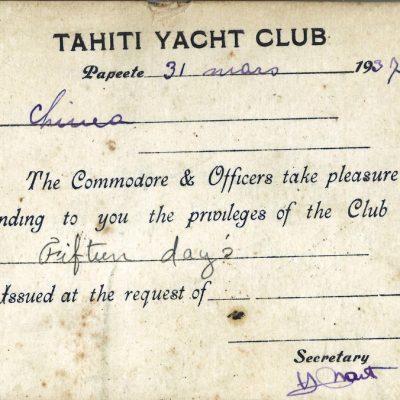 TAHITI YACHT CLUB
Papeete 31 mars 1937
The Commodore & Officers take pleasure
nding to you the privileges of the Club
Fifteen day's
Issued at the request of
Secretary